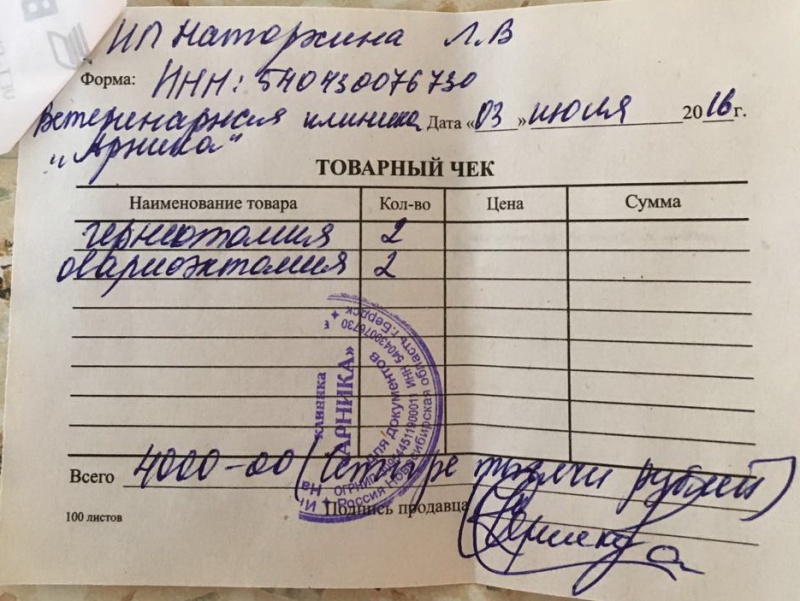 ИП Наторхина Л.В
Форма: ИНН: 540430076730
Ветеринарная клиника Дата «03» июля 2016 г.
„Арника“
ТОВАРНЫЙ ЧЕК
Наименование товара Кол-во Цена Сумма
герниотомия 2
овариоэктомия 2
клиника
АРНИКА»
для документов
Россия Новосибирская область г.Бердск
Всего 4000-00 (Четыре тысячи рублей)
Подпись продавца
100 листов